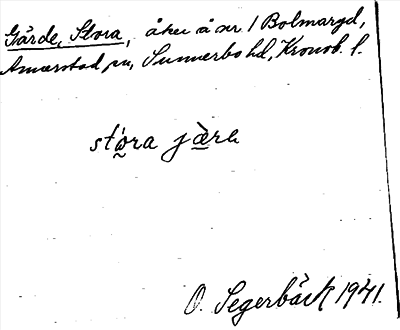 Gärde, Stora, åker å nr 1 Bolmaryd,
Annerstad sn, Sunnerbo hd, Kronob. l.
stóra jæ̀rə
O. Segerbäck 1941.